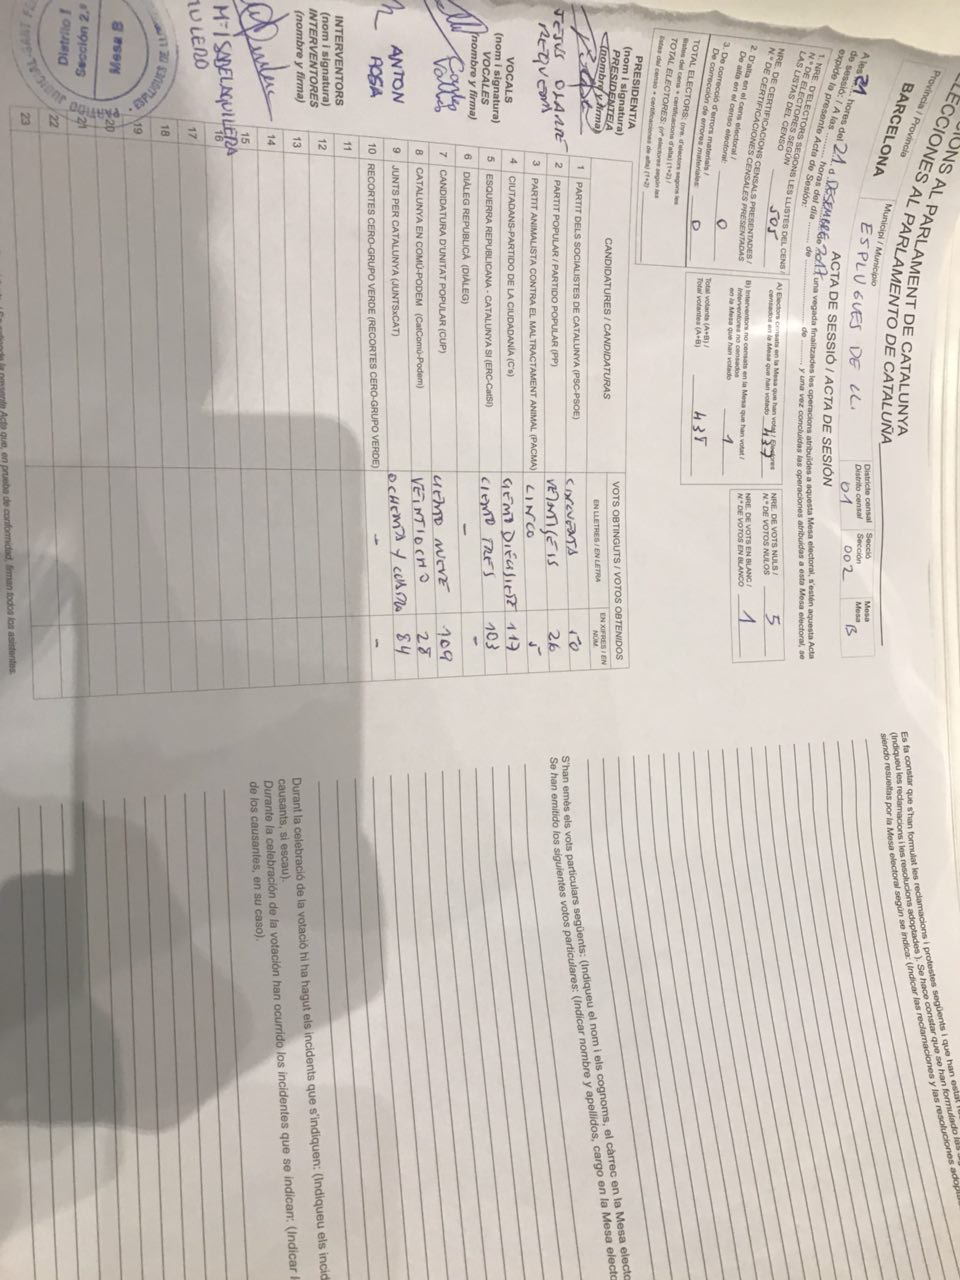 ELECCIONS AL PARLAMENT DE CATALUNYA
ELECCIONES AL PARLAMENTO DE CATALUÑA
Província / Provincia
BARCELONA
Municipi / Municipio
ESPLUGUES DE LL.
Districte censal
Distrito censal
01
Secció
Sección
002
Mesa
Mesa
B
ACTA DE SESSIÓ / ACTA DE SESIÓN
A les 21 hores del 21 d DESEMBRE 2017 una vegada finalitzades les operacions atribuïdes a aquesta Mesa electoral, s'estén aquesta Acta
de sessió. / A las ........ horas del día ........ de ........ de ........ y una vez concluidas las operaciones atribuidas a esta Mesa electoral, se
expide la presente Acta de Sesión:
1. NRE. D'ELECTORS SEGONS LES LLISTES DEL CENS /
N.º DE ELECTORES SEGÚN
LAS LISTAS DEL CENSO
505
NRE. DE CERTIFICACIONS CENSALS PRESENTADES /
N.º DE CERTIFICACIONES CENSALES PRESENTADAS
2. D'alta en el cens electoral /
De alta en el censo electoral:
0
3. De correcció d'errors materials /
De corrección de errores materiales:
0
TOTAL ELECTORS: (nre. d'electors segons les
llistes del cens + certificacions d'alta) (1+2) /
TOTAL ELECTORES: (nº electores según las
listas del censo + certificaciones de alta) (1+2)
A) Electors censats en la Mesa que han votat / Electores
censados en la Mesa que han votado
437
B) Interventors no censats en la Mesa que han votat /
Interventores no censados
en la Mesa que han votado
1
Total votants (A+B) /
Total votantes (A+B)
438
NRE. DE VOTS NULS /
N.º DE VOTOS NULOS
5
NRE. DE VOTS EN BLANC /
N.º DE VOTOS EN BLANCO
1
CANDIDATURES / CANDIDATURAS
VOTS OBTINGUTS / VOTOS OBTENIDOS
EN LLETRES / EN LETRA
EN XIFRES / EN NÚM.
1 PARTIT DELS SOCIALISTES DE CATALUNYA (PSC-PSOE) CINCUENTA 50
2 PARTIT POPULAR / PARTIDO POPULAR (PP) VEINTISEIS 26
3 PARTIT ANIMALISTA CONTRA EL MALTRACTAMENT ANIMAL (PACMA) CINCO 5
4 CIUTADANS-PARTIDO DE LA CIUDADANÍA (C's) CIENTO DIECISIETE 117
5 ESQUERRA REPUBLICANA - CATALUNYA SÍ (ERC-CatSÍ) CIENTO TRES 103
6 DIÀLEG REPUBLICÀ (DIÀLEG) - -
7 CANDIDATURA D'UNITAT POPULAR (CUP) CIENTO NUEVE 109
8 CATALUNYA EN COMÚ-PODEM (CatComú-Podem) VEINTIOCHO 28
9 JUNTS PER CATALUNYA (JUNTSxCAT) OCHENTA Y CUATRO 84
10 RECORTES CERO-GRUPO VERDE (RECORTES CERO-GRUPO VERDE) - -
11
12
13
14
15
16
17
18
19
20
21
22
23
PRESIDENT/A
(nom i signatura)
PRESIDENTE/A
(nombre y firma)
JESUS OLARTE
VOCALS
(nom i signatura)
VOCALES
(nombre y firma)
ANTON
ROSA
INTERVENTORS
(nom i signatura)
INTERVENTORES
(nombre y firma)
Districte I
Sección 2ª
Mesa B
Es fa constar que s'han formulat les reclamacions i protestes següents i que han estat
(Indiqueu les reclamacions i les resolucions adoptades). Se hace constar que se han formulado las
siendo resueltas por la Mesa electoral según se indica: (Indicar las reclamaciones y las resoluciones
S'han emès els vots particulars següents: (Indiqueu el nom i els cognoms, el càrrec en la Mesa
Se han emitido los siguientes votos particulares: (Indicar nombre y apellidos, cargo en la Mesa
Durant la celebració de la votació hi ha hagut els incidents que s'indiquen: (Indiqueu els
causants, si escau).
Durante la celebración de la votación han ocurrido los incidentes que se indican: (Indicar
de los causantes, en su caso).
la presente Acta que, en prueba de conformidad, firman todos los asistentes.